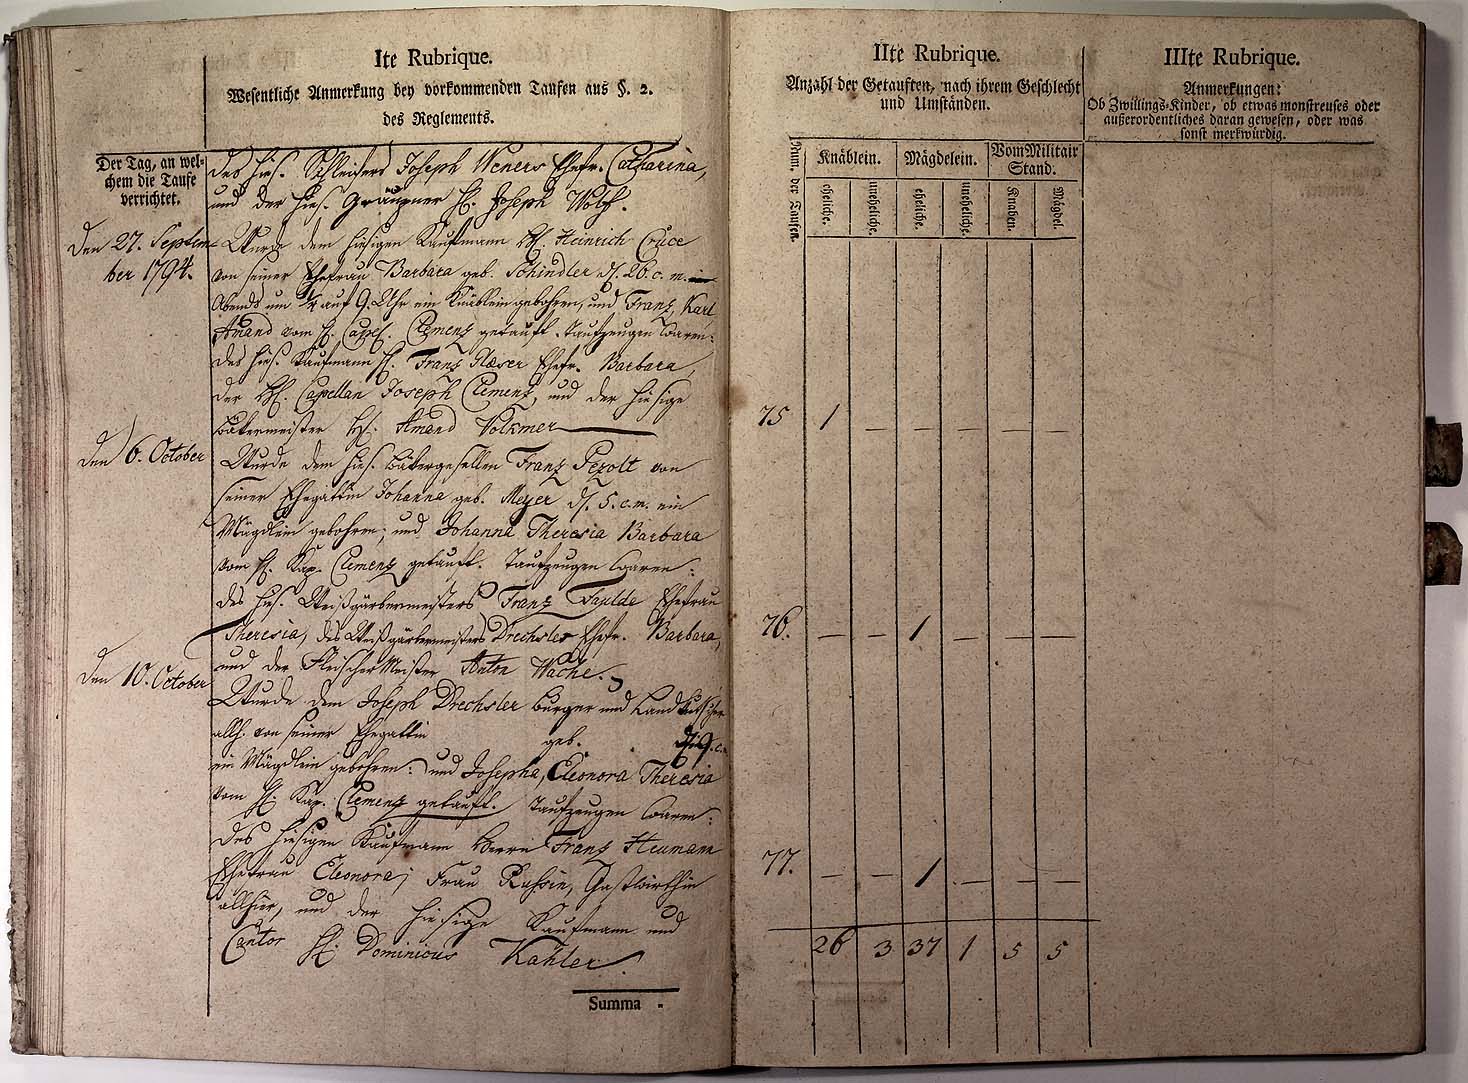 Ite Rubrique.
Wesentliche Anmerkung bey vorkommenden Taufen aus §. 2.
des Reglements.
Der Tag, an wel-
chem die Taufe
verrichtet.
des hies. Joseph Weners Ehefr. Catharina,
und der hies. Gräupner H. Joseph Wolf.
Den 27. Septem-
ber 1794.
Wurde dem hiesigen Kaufmann H. Heinrich Cruce
von seiner Ehefrau Barbara geb. Schindler d. 26. c. m.
Abends um 1/4 auf 9. Uhr ein Knäblein gebohren, und Franz, Karl
Amand vom H. Capl. Clemenz getauft. Taufzeugen waren:
des hies. Kaufmann H. Franz Glæser Ehefr. Barbara,
der H. Capellan Joseph Clemenz, und der hiesige
Bäkermeister H. Amand Volkmer
den 6. October
Wurde dem hies. Bäkergesellen Franz Pezolt von
seiner Ehegattin Johanna geb. Meyer d. 5. c. m. ein
Mägdlein gebohren, und Johanna Theresia Barbara
vom H. Kap. Clemenz getauft. Taufzeugen waren:
des hies. Weißgärbermeisters Franz Faulde Ehefrau
Theresia, des Weißgärbermeisters Drechsler Ehefr. Barbara,
und der Fleischer Meister Anton Wache.
den 10. October
Wurde dem Joseph Drechsler Burger und Land
allh. von seiner Ehegattin geb. d. 9. c.
ein Mägdlein gebohren: und Josepha, Eleonora Theresia
vom H. Kap. Clemenz getauft. Taufzeugen waren:
des hiesigen Kaufmann Herrn Franz Heumann
Ehefrau Eleonora; Frau Gastwirthin
allhier, und der hiesige Kaufmann und
Cantor H. Dominicus Kahler.
Summa
IIte Rubrique.
Anzahl der Getauften, nach ihrem Geschlecht
und Umständen.
Num. der Taufen.
Knäblein. Mägdelein. Vom Militair
Stand.
eheliche. uneheliche. eheliche. uneheliche. Knaben. Mägdel.
75 1 — — — — —
76. — — 1 — — —
77. — — 1 — — —
26 3 37 1 5 5
IIIte Rubrique.
Anmerkungen:
Ob Zwillings-Kinder, ob etwas monstreuses oder
außerordentliches daran gewesen, oder was
sonst merkwürdig.